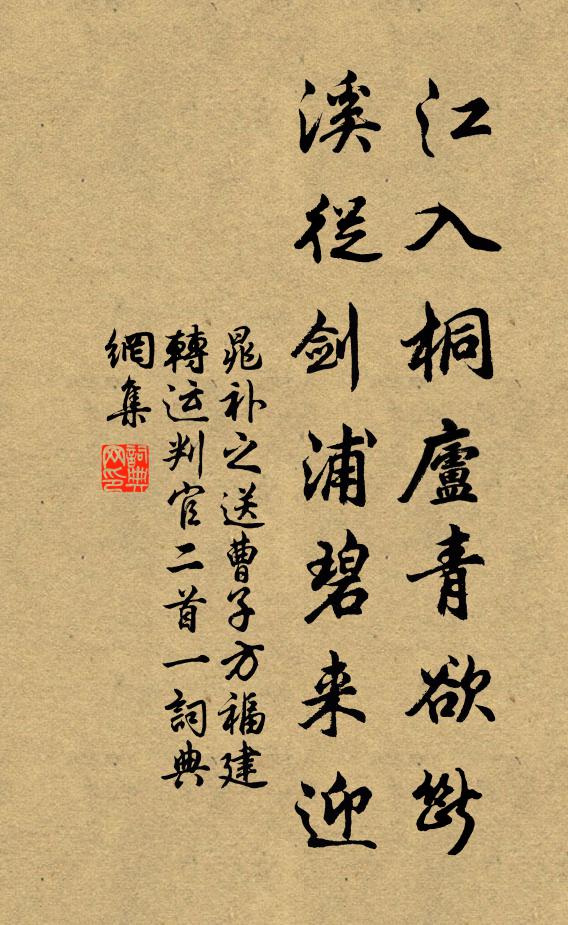 江入桐廬青欲斷
溪從剑浦碧来迎
晁补之送曹子方福建
轉运判官二首一詞典
網集
詞典
网印